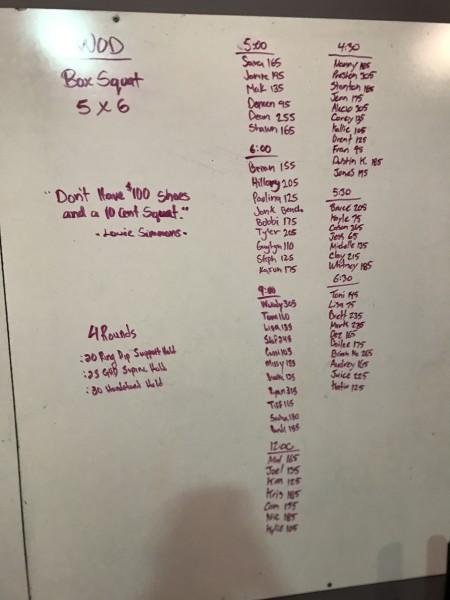 WOD
Box Squat
5 x 6
"Don't Have $100 Shoes
and a 10 Cent Squat."
- Louie Simmons -
4 Rounds
:20 Ring Dip Support Hold
:25 Grip Supine Hold
:30 Handstand Hold
5:00
Sara 165
Jamie 195
Mak 135
Doreen 95
Dean 255
Shawn 165
6:00
Brian 155
Hillary 205
Paulina 125
Jank Bench
Bobbi 175
Tyler 205
110
Steph 125
Karun 175
9:00
Woody 305
Tara 110
Lisa 135
248
105
Missy 135
125
Ryan 315
Tiff 115
Sasha 130
155
12:00
Mal 165
Joel 135
Kim 125
Kris 185
Cam 155
Nic 185
Kylie 105
4:30
Manny 185
Preston 305
Stanton 185
Jenn 175
Alecio 305
Corey 135
Kallie 105
Brent 125
Fran 95
Dustin K. 185
Jones 195
5:30
Bruce 205
Hayle 75
Cohan 365
Jess 65
Michelle 135
Clay 215
Whitney 185
6:30
Toni 145
Lisa 75
Brett 235
Mark 235
Dez 165
Dailee 175
Brian Mc 265
Audrey 165
Juice 225
Katie 125